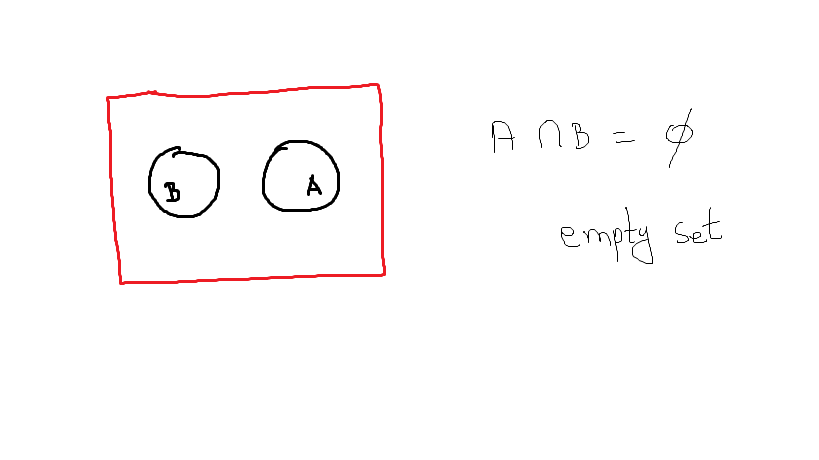 B A
A ∩ B = ϕ
empty set